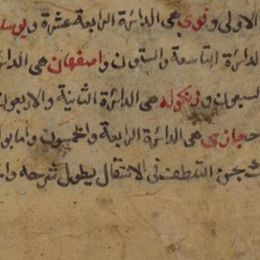 الاولى ونوى هى الدائرة الرابعة عشرة وبوسل
الدائرة التاسعة والستون واصفهان هى الدا
السبعون وزنكوله هى الدائرة الثانية والاربعون
حجازى هى الدائرة الرابعة والخمسون واما بو
جن التلطف فى الانتقال يطول شرحه وا